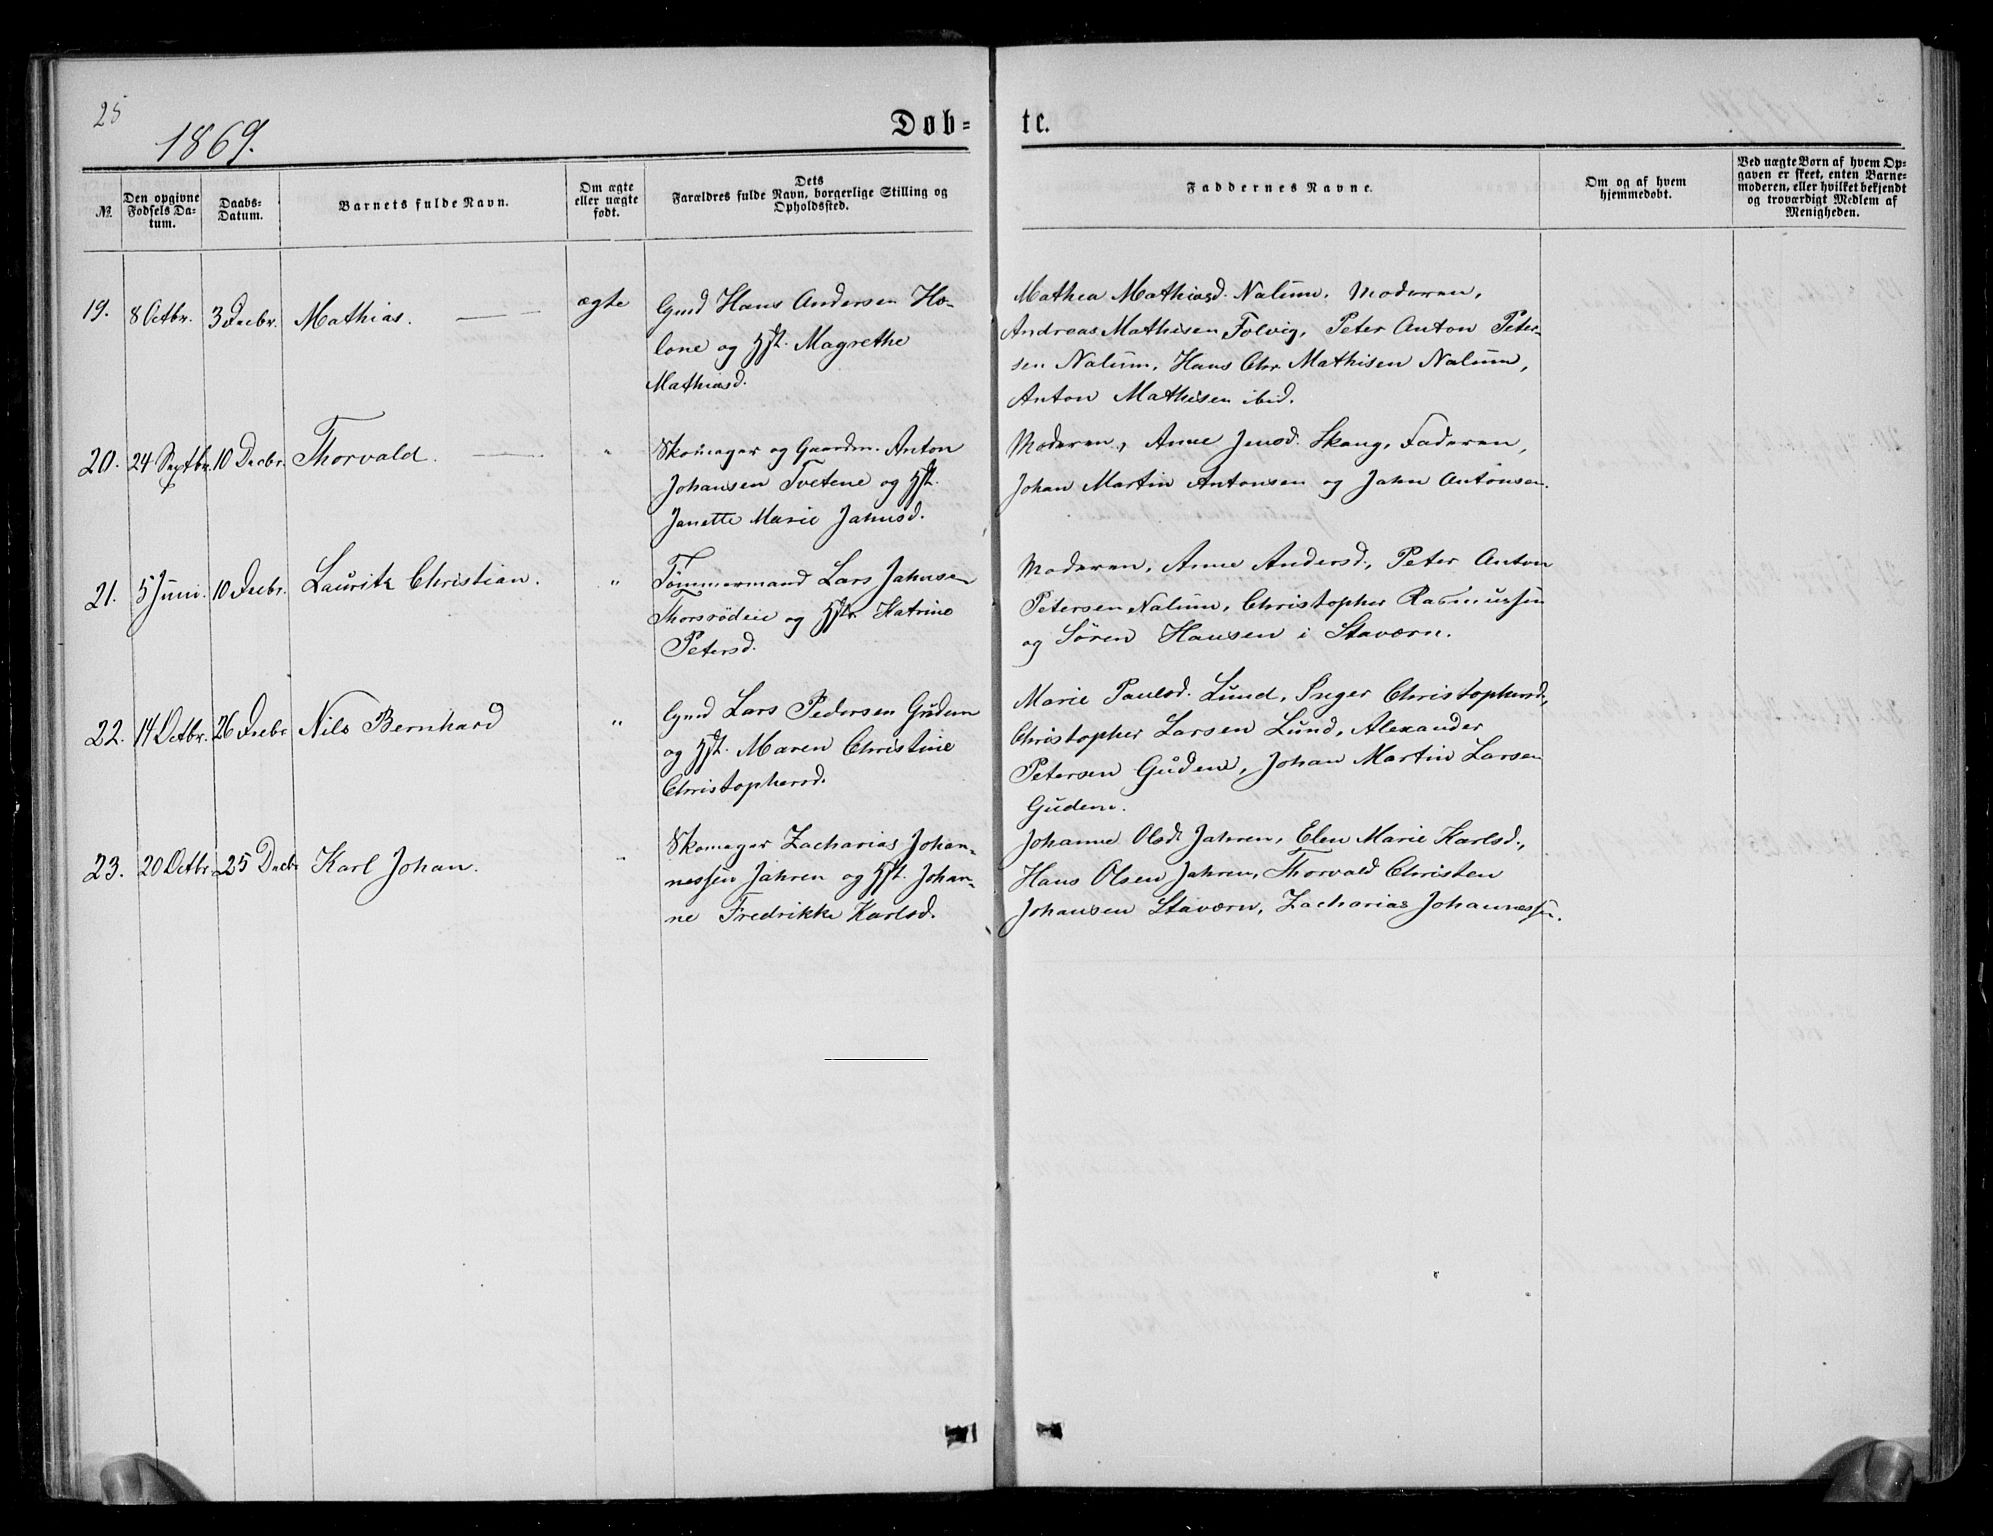 25
1869.
Døb=
te.
№.
Den opgivne
Fødsels Da=
tum.
Daabs=
Datum.
Barnets fulde Navn.
Om ægte
eller uægte
født.
Dets
Forældres fulde Navn, borgerlige Stilling og
Opholdssted.
Faddernes Navne.
Om og af hvem
hjemmedøbt.
Ved uægte Børn af hvem Op=
gaven er skeet, enten Barne=
moderen, eller hvilket bekjendt
og troværdigt Medlem af
Menigheden.
19. 8 Octbr. 3 Decbr. Mathias. ægte
Gmd Hans Andersen Ho-
lone og Hst. Magrethe
Mathiasd.
Mathea Mathiasd. Nalum, Moderen,
Andreas Mathisen Folvig, Peter Anton Peter-
sen Nalum, Hans Chr. Mathisen Nalum,
Anton Mathisen ibid.
20. 24 Septbr. 10 Decbr. Thorvald. "
Skomager og Gaardm. Anton
Johansen Tvetene og Hst.
Janette Marie Jahnsd.
Moderen, Anne Jensd. Skang, Faderen,
Johan Martin Antonsen og Jahn Antonsen.
21. 5 Juni. 10 Decbr. Lauritz Christian. "
Tømmermand Lars Jahnsen
Thorsrødeie og Hstr. Katrine
Petersd.
Moderen, Anne Andersd., Peter Anton
Petersen Nalum, Christopher Rasmussen
og Søren Hansen i Staværn.
22. 14 Octbr. 26 Decbr Nils Bernhard "
Gmd Lars Pedersen Gudem
og Hst. Maren Christine
Christophersd.
Marie Paulsd. Lund, Inger Christophersd.,
Christopher Larsen Lund, Alexander
Petersen Gudem, Johan Martin Larsen
Gudem.
23. 20 Octbr. 25 Decbr Karl Johan. "
Skomager Zacharias Johan-
nessen Jahren og Hst. Johan-
ne Fredrikke Karlsd.
Johanne Olsd. Jahren, Elen Marie Karlsd.,
Hans Olsen Jahren, Thorvald Christen
Johansen Staværn, Zacharias Johannessen.